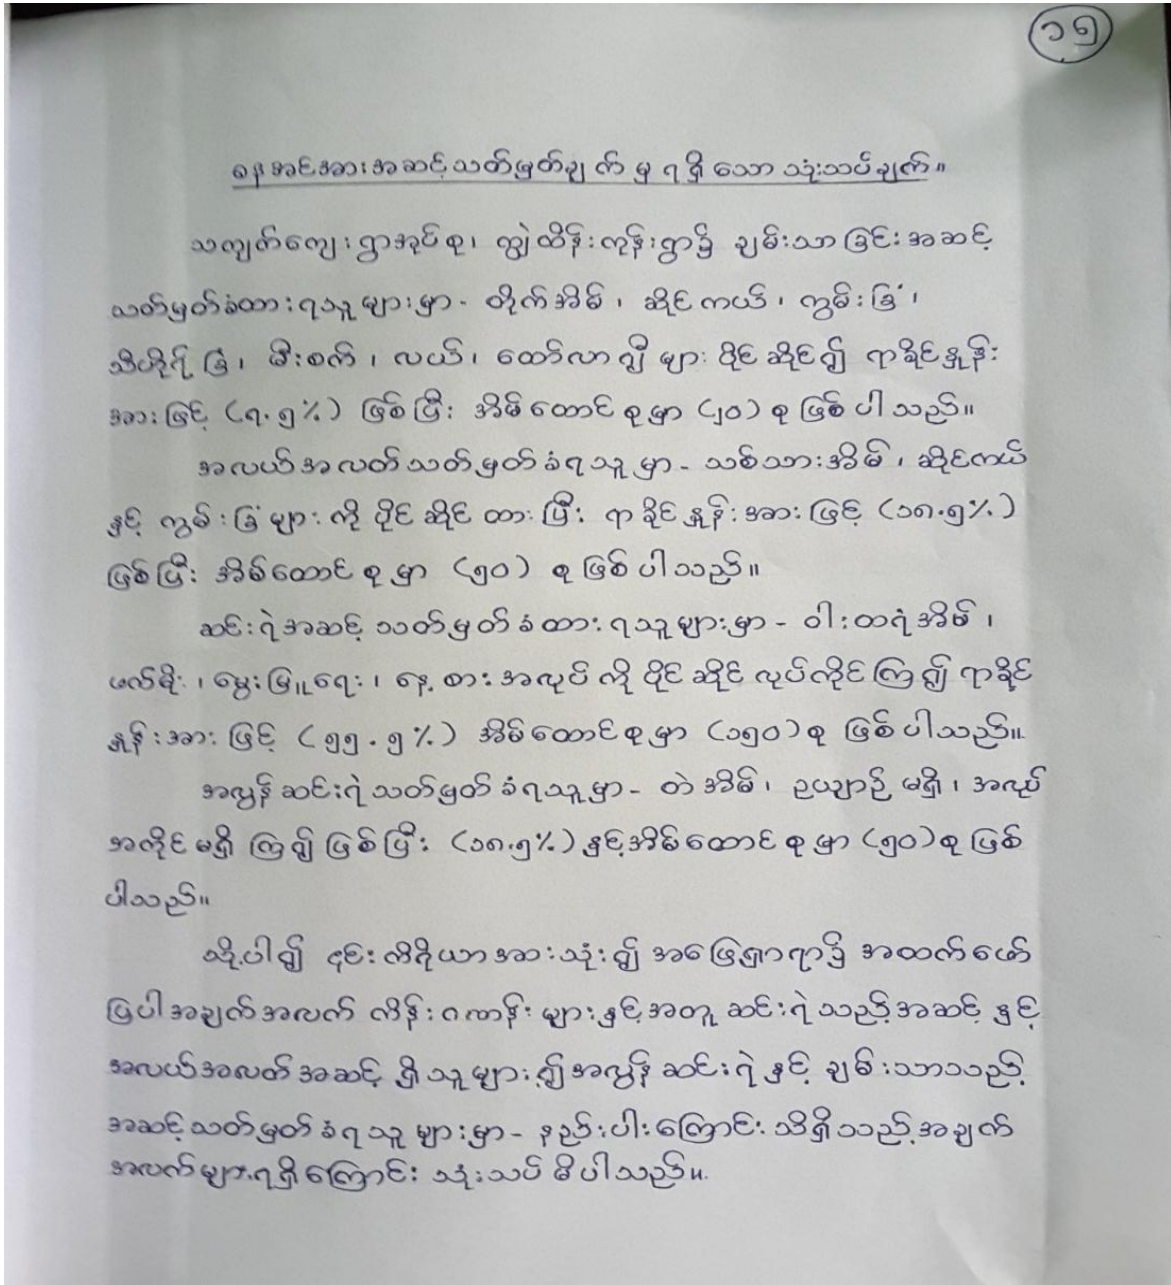 ၁၅
ဓနအင်အားအဆင့်သတ်မှတ်ချက်မှ ရရှိသော သုံးသပ်ချက်။
သကျက်ကျေးရွာအုပ်စု၊ ကျွဲထိန်းကုန်းရွာ၌ ချမ်းသာခြင်းအဆင့်
သတ်မှတ်ခံထားရသူများမှာ - တိုက်အိမ်၊ ဆိုင်ကယ်၊ ကွမ်းခြံ၊
သီဟိုဠ်ခြံ၊ မီးစက်၊ လယ်၊ ထော်လာဂျီများ ပိုင်ဆိုင်၍ ရာခိုင်နှုန်း
အားဖြင့် (၇.၅%) ဖြစ်ပြီး အိမ်ထောင်စုမှာ (၂၀) စုဖြစ်ပါသည်။
အလယ်အလတ်သတ်မှတ်ခံရသူမှာ - သစ်သားအိမ်၊ ဆိုင်ကယ်
နှင့် ကွမ်းခြံများကို ပိုင်ဆိုင်ထားပြီး ရာခိုင်နှုန်းအားဖြင့် (၁၈.၅%)
ဖြစ်ပြီး အိမ်ထောင်စုမှာ (၅၀) စုဖြစ်ပါသည်။
ဆင်းရဲအဆင့် သတ်မှတ်ခံထားရသူများမှာ - ဝါးထရံအိမ်၊
ဖက်မိုး၊ မွေးမြူရေး၊ နေ့စားအလုပ်ကို ပိုင်ဆိုင်လုပ်ကိုင်ကြ၍ ရာခိုင်
နှုန်းအားဖြင့် (၅၅.၅%) အိမ်ထောင်စုမှာ (၁၅၀) စု ဖြစ်ပါသည်။
အလွန်ဆင်းရဲသတ်မှတ်ခံရသူမှာ - တဲအိမ်၊ ဥယျာဉ်မရှိ၊ အလုပ်
အကိုင်မရှိကြ၍ဖြစ်ပြီး (၁၈.၅%) နှင့်အိမ်ထောင်စုမှာ (၅၀) စုဖြစ်
ပါသည်။
သို့ပါ၍ ၎င်းကိရိယာအားသုံး၍ အဖြေရှာရာ၌ အထက်ဖော်
ပြပါအချက်အလက် ကိန်းဂဏန်းများနှင့်အတူ ဆင်းရဲသည့်အဆင့် နှင့်
အလယ်အလတ်အဆင့် ရှိသူများ၍အလွန်ဆင်းရဲ နှင့် ချမ်းသာသည့်
အဆင့်သတ်မှတ်ခံရသူများမှာ - နည်းပါးကြောင်း သိရှိသည့်အချက်
အလက်များရရှိကြောင်း သုံးသပ်မိပါသည်။